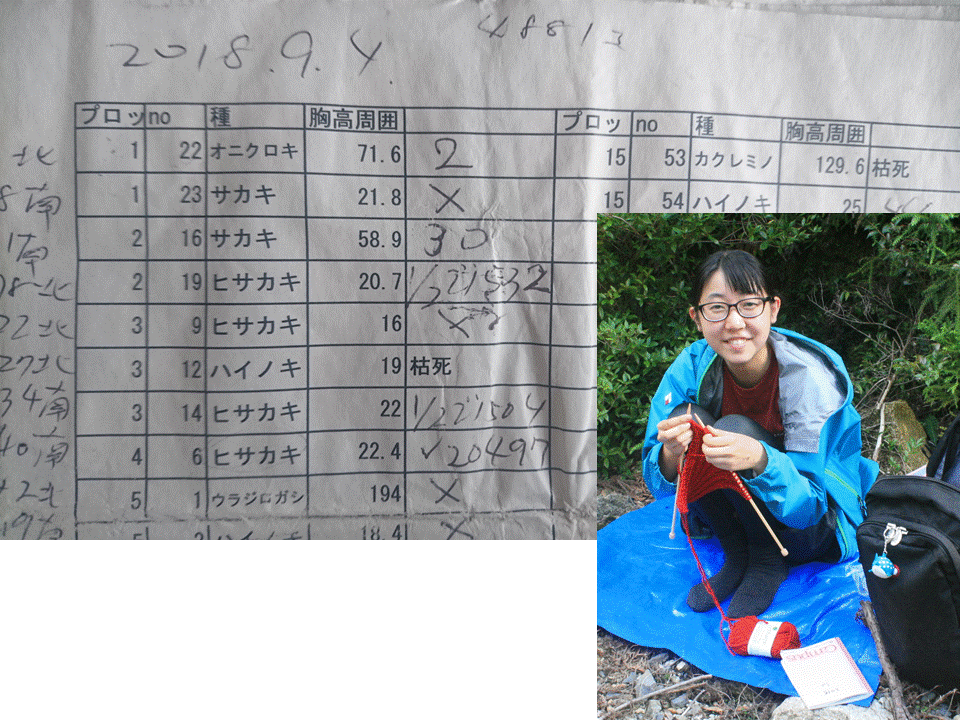 2018.9.4.
48813
プロッ no 種 胸高周囲 プロッ no 種 胸高周囲
北 1 22 オニクロキ 71.6 2 15 53 カクレミノ 129.6 枯死
8南 1 23 サカキ 21.8 × 15 54 ハイノキ 25
南 2 16 サカキ 58.9 30
北 2 19 ヒサカキ 20.7
22北 3 9 ヒサカキ 16 ×
27北 3 12 ハイノキ 19 枯死
34南 3 14 ヒサカキ 22
40南 4 6 ヒサカキ 22.4 ✓20497
42北 5 1 ウラジロガシ 194 ×
ハイノキ 18.4 ×
Campus